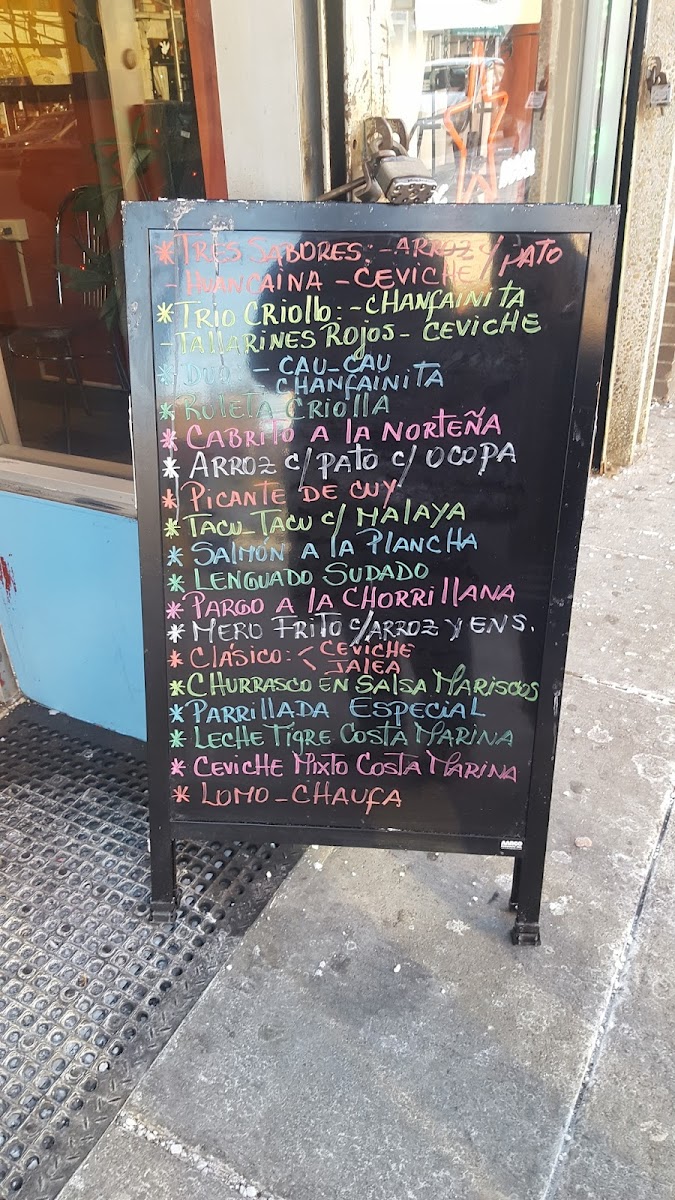 * TRES SABORES: - ARROZ C/ PATO
- HUANCAINA - CEVICHE
* TRIO CRIOLLO: - CHANFAINITA
- TALLARINES ROJOS - CEVICHE
* DUO: - CAU-CAU
- CHANFAINITA
* RULETA CRIOLLA
* CABRITO A LA NORTEÑA
* ARROZ C/ PATO C/ OCOPA
* PICANTE DE CUY
* TACU-TACU C/ MALAYA
* SALMÓN A LA PLANCHA
* LENGUADO SUDADO
* PARGO A LA CHORRILLANA
* MERO FRITO C/ARROZ Y ENS.
* CLÁSICO: < CEVICHE
JALEA
* CHURRASCO EN SALSA MARISCOS
* PARRILLADA ESPECIAL
* LECHE TIGRE COSTA MARINA
* CEVICHE MIXTO COSTA MARINA
* LOMO - CHAUFA